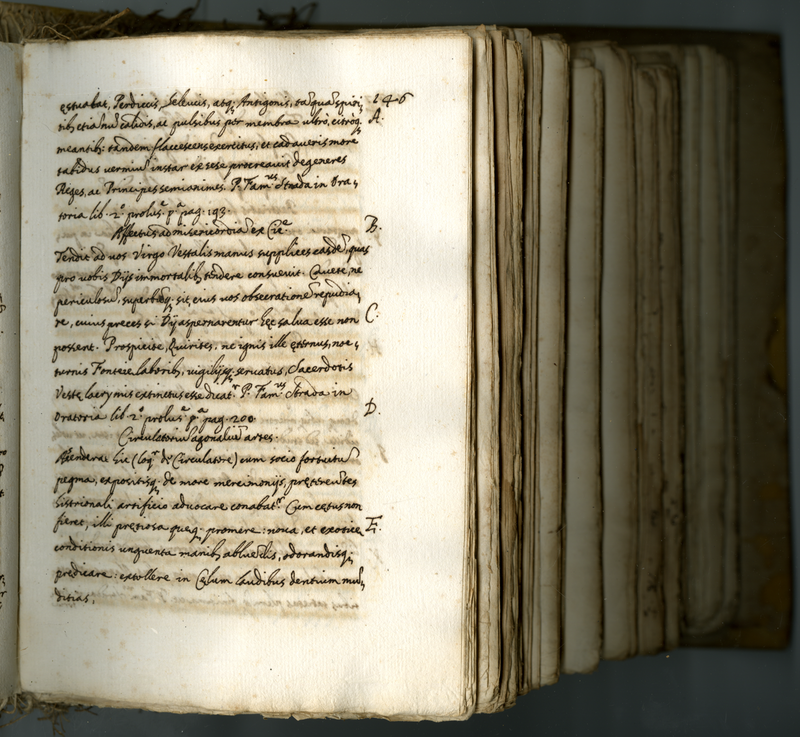 146
ęstuabat, Perdiccis, Seleucis, atq; Antigonis, tā quā spiri,
tib; etia nū calidis, ac pulsibus per membra ultrò, citròq; A.
meantib; tandem flaccescens exercitus, et cadaveris more
tabidus vermiū instar ex sese procreavit degeneres
Reges, ac Principes semianimes. P. Fam.us Strada in Ora,
toria lib. 2.º prolus.e p.a pag. 193.
Affectus ad misericordiā ex Cic.e B.
Tendit ad vos Virgo Vestalis manus supplices easdē, quas
pro vobis Dijs immortalib; tendere consuevit. Cavete, ne
periculosū, superbūq; sit, eius vos obsecrationē repudia,
re, cuius preces si Dij aspernarentur hęc salva esse non C.
possent. Prospicite, Quirites, ne ignis ille ęternus, noc,
turnis Fonteię laborib;, vigilijsq; servatus, Sacerdotis
Vestę lacrymis extinctus esse dicat.r P. Fam.us Strada in
Oratoria lib. 2.º prolus.e p.a pag. 200. D.
Circulatoriū agonaliū artes.
Ascenderat hic (loq.r de Circulatore) cum socio fortuitū
pegma, expositisq; de more mercimonijs, prętereūtes
histrionali artificio advocare conabat.r Cum cętus non
fieret, illi pretiosa quęq; promere: nova, et exoticę E.
conditionis unguenta manib; abluēdis, odorandisq;
prędicare: extollere in Cęlum laudibus dentium mū,
ditias,